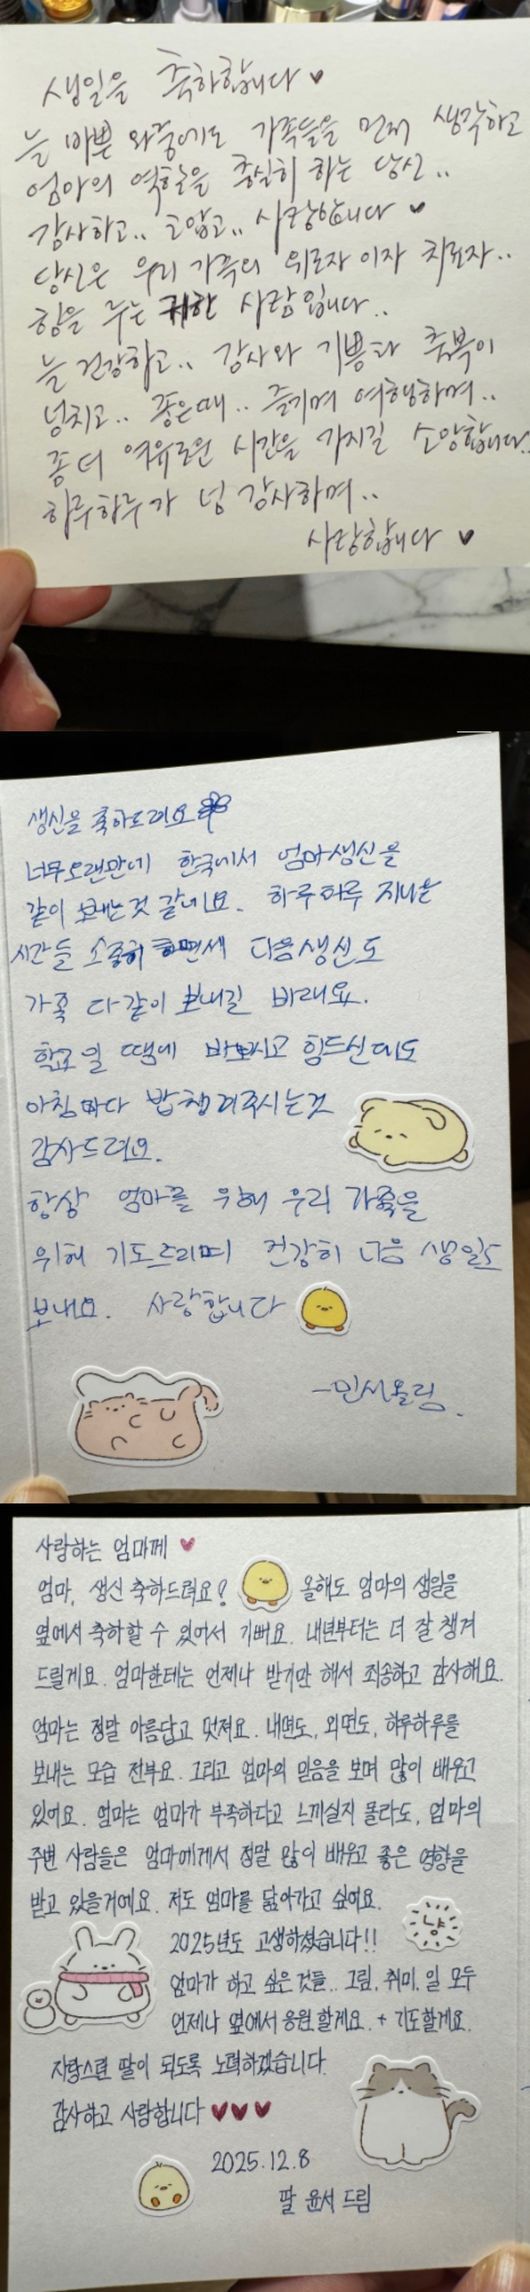 생일을 축하합니다 ♥
늘 바쁜 와중에도 가족들을 먼저 생각하고
엄마의 역할을 충실히 하는 당신..
감사하고.. 고맙고.. 사랑합니다 ♥
당신은 우리 가족의 위로자 이자 치료자..
힘을 주는 귀한 사람입니다..
늘 건강하고.. 감사와 기쁨과 축복이
넘치고.. 좋은때.. 즐기며 여행하며..
좀 더 여유로운 시간을 가지길 소망합니다.
하루하루가 넘 감사하며..
사랑합니다 ♥
생신을 축하드려요
너무오랜만에 한국에서 엄마생신을
같이 보내는것 같네요. 하루하루 지나는
시간들 소중히 하면서 다음생신도
가족 다같이 보내길 바래요.
학교일 땜에 바쁘시고 힘드신데도
아침마다 밥챙겨주시는것
감사드려요.
항상 엄마를 위해 우리 가족을
위해 기도드리며 건강히 다음 생일도
보내요. 사랑합니다
-민서올림.
사랑하는 엄마께 ♥
엄마, 생신 축하드려요! 올해도 엄마의 생일을
옆에서 축하할 수 있어서 기뻐요. 내년부터는 더 잘 챙겨
드릴게요. 엄마한테는 언제나 받기만 해서 죄송하고 감사해요.
엄마는 정말 아름답고 멋져요. 내면도, 외면도, 하루하루를
보내는 모습 전부요. 그리고 엄마의 믿음을 보며 많이 배우고
있어요. 엄마는 엄마가 부족하다고 느끼실지 몰라도, 엄마의
주변 사람들은 엄마에게서 정말 많이 배우고 좋은 영향을
받고 있을거예요. 저도 엄마를 닮아가고 싶어요.
냥
2025년도 고생하셨습니다!!
엄마가 하고 싶은 것들.. 그림, 취미, 일 모두
언제나 옆에서 응원할게요. + 기도할게요.
자랑스런 딸이 되도록 노력하겠습니다.
감사하고 사랑합니다 ♥♥♥
2025.12.8
딸 윤서 드림